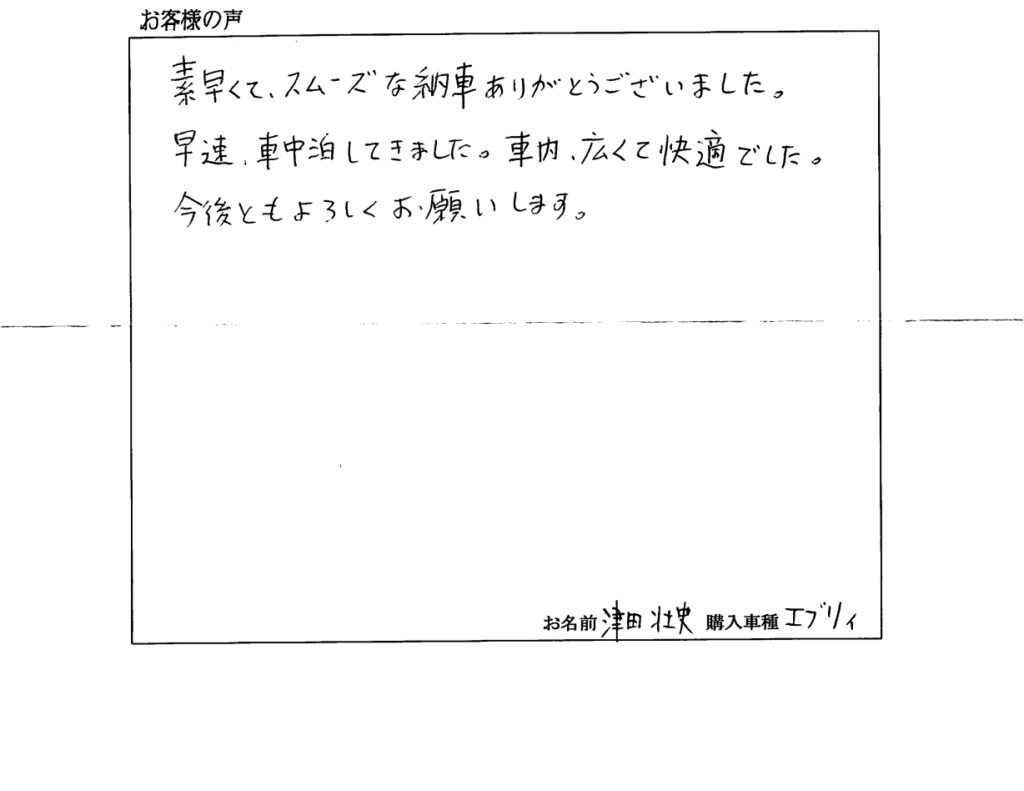 お客様の声
素早くて、スムーズな納車ありがとうございました。
早速、車中泊してきました。車内、広くて快適でした。
今後ともよろしくお願いします。
お名前 津田 壮史 購入車種 エブリィ